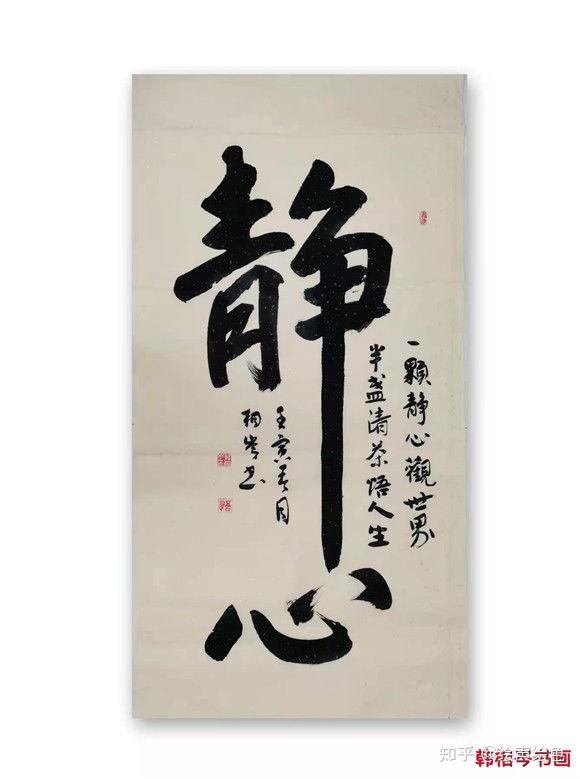 静心
一颗静心觀世界
半盏清茶悟人生
壬寅春月
书
知乎
韩梧岑书画